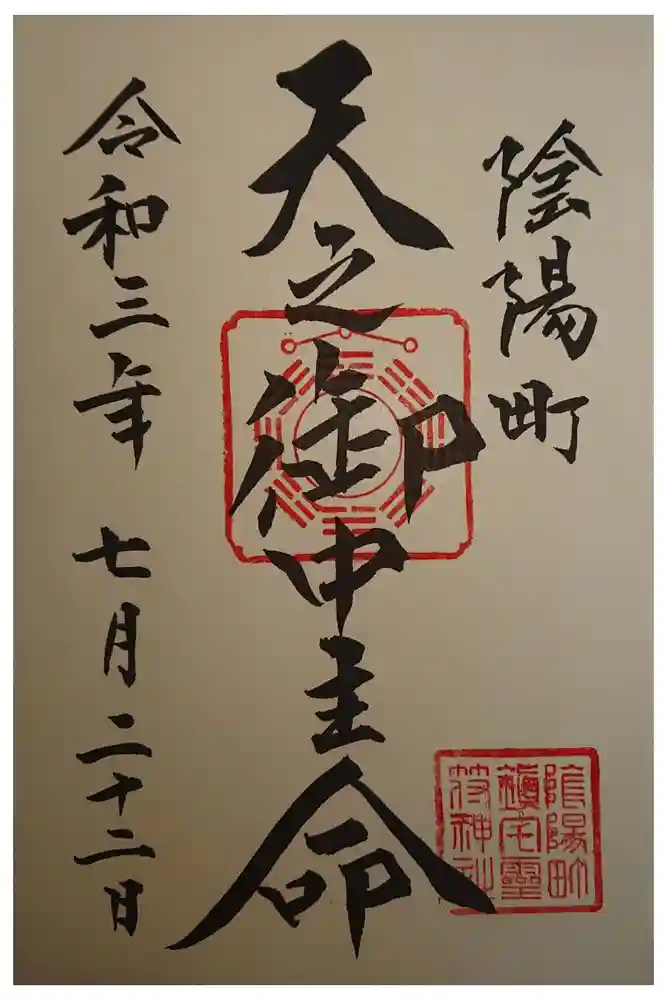 陰陽町
天之御中主命
令和三年 七月二十二日
陰陽町
鎮宅霊
符神社